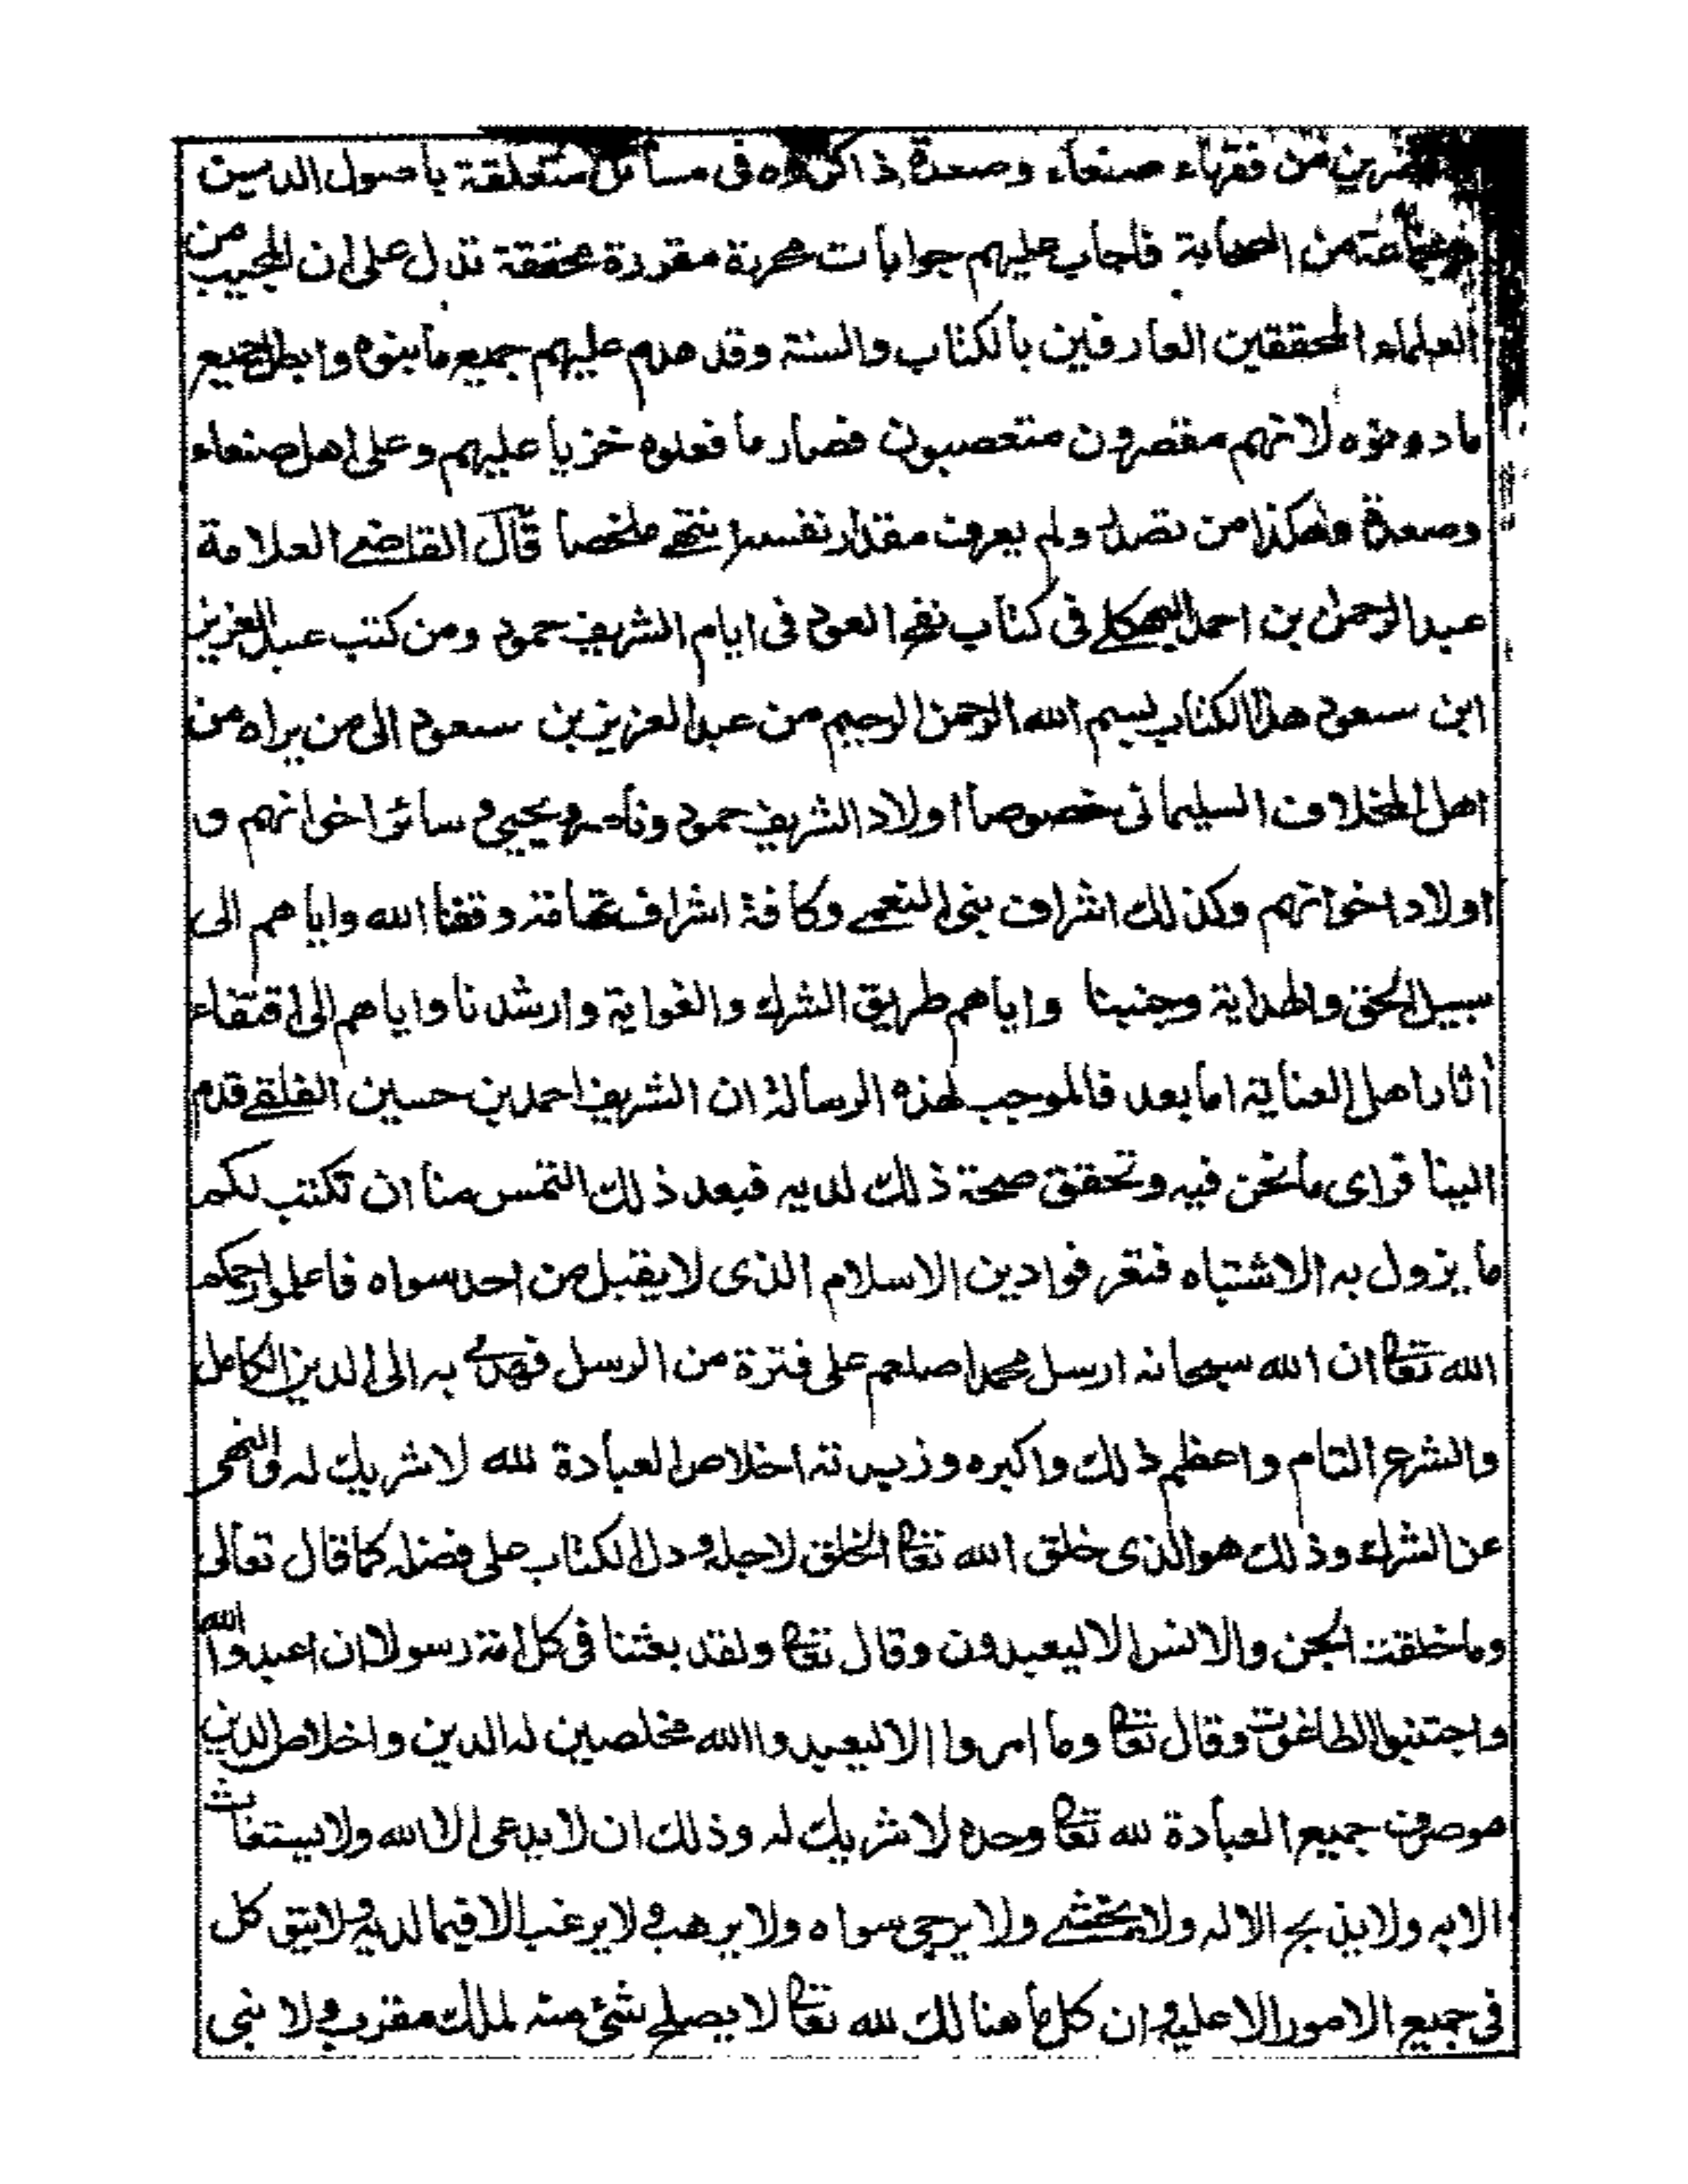 من فقهاء صنعاء وصعدة ذاكروه فى مسائل متعلقة باصول الدين
من الصحابة فاجاب عليهم جوابات محررة مقررة محققة تدل على ان المجيب من
العلماء المحققين العارفين بالكتاب والسنة وقد هدم عليهم جميع ما بنوه وابطل جميع
ما دونوه لانهم مقصرون متعصبون فصار ما فعلوه خزيا عليهم وعلى اهل صنعاء
وصعدة وهكذا من تصدر ولم يعرف مقدار نفسه انتهى ملخصا قال القاضى العلامة
عبد الرحمن بن احمد البهكلى فى كتاب نفح العود فى ايام الشريف حمود ومن كتب عبد العزيز
ابن سعود هذا الكتاب بسم الله الرحمن الرحيم من عبد العزيز بن سعود الى من يراه من
اهل المخلاف السليمانى خصوصا اولاد الشريف حمود وناصر ويحيى وسائر اخوانهم و
اولاد اخوانهم وكذلك اشراف بنى النعمى وكافة اشراف تهامة وفقنا الله واياهم الى
سبيل الحق والهداية وجنبنا واياهم طريق الشرك والغواية وارشدنا واياهم الى اقتفاء
أثار اهل العناية اما بعد فالموجب لهذه الرسالة ان الشريف احمد بن حسين الفلقى قدم
الينا فراى ما نحن فيه وتحقق صحة ذلك لديه فبعد ذلك التمس منا ان نكتب لكم
ما يزول به الاشتباه فتعرفوا دين الاسلام الذى لا يقبل من احد سواه فاعلموا رحمكم
الله تعا ان الله سبحانه ارسل محمدا صلعم على فترة من الرسل فهدى به الى الدين الكامل
والشرع التام واعظم ذلك واكبره وزبدته اخلاص العبادة لله لا شريك له والنهى
عن الشرك وذلك هو الذى خلق الله تعا الخلق لاجله ودل الكتاب على فضله كما قال تعالى
وما خلقت الجن والانس الا ليعبدون وقال تعا ولقد بعثنا فى كل امة رسولا ان اعبدوا الله
واجتنبوا الطاغوت وقال تعا وما امروا الا ليعبدوا الله مخلصين له الدين واخلاص الدين
هو صرف جميع العبادة لله تعا وحده لا شريك له وذلك ان لا يدعى الا الله ولا يستغاث
الا به ولا يذبح الا له ولا يخشى ولا يرجى سواه ولا يرهب ولا يرغب الا فيما لديه ولا يتوكل
فى جميع الامور الا عليه وان كل ما هنالك لله تعا لا يصلح شئ منه لملك مقرب ولا نبى